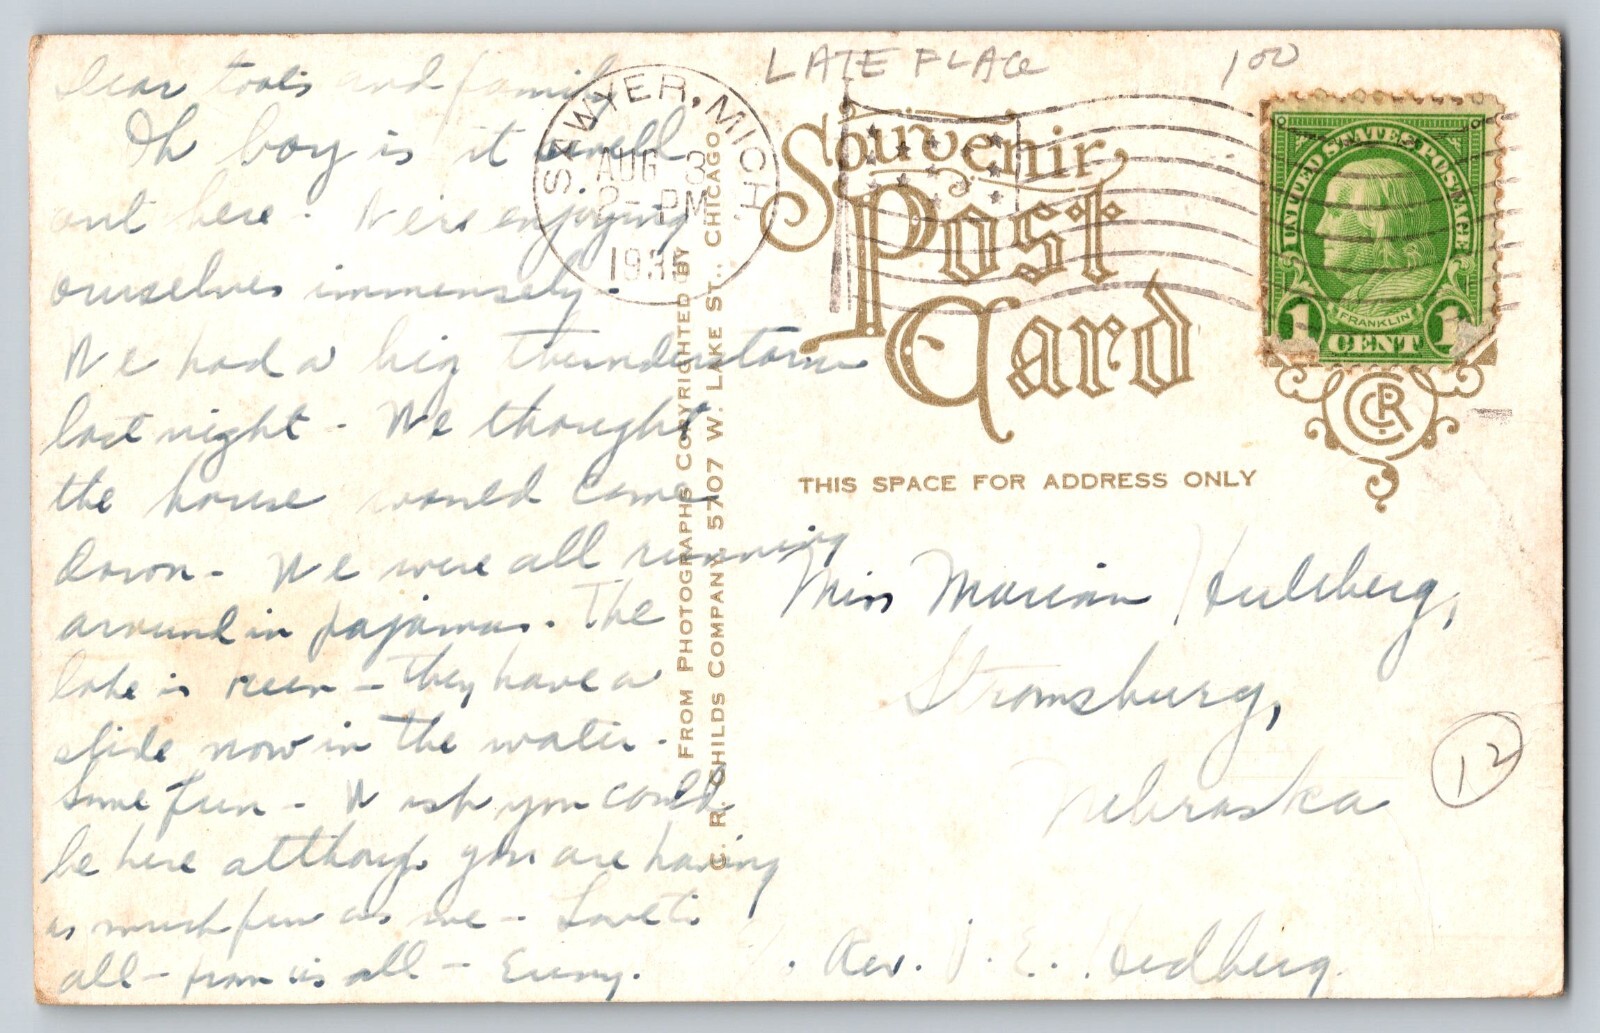 Dear toots and family
Oh boy is it cold
out here - We're enjoying
ourselves immensely -
We had a big thunderstorm
last night - We thought
the house would come
down - We were all running
around in pajamas. The
lake is keen - they have a
slide now in the water -
Some fun - Wish you could
be here although you are having
as much fun as we - Love to
all - from us all -
SAWYER, MICH.
AUG 3
2 - PM
LATE FLAG
100
Souvenir
Post
Card
UNITED STATES POSTAGE
FRANKLIN
1 CENT 1
FROM PHOTOGRAPHS COPYRIGHTED BY
C. R. CHILDS COMPANY 5707 W. LAKE ST., CHICAGO
THIS SPACE FOR ADDRESS ONLY
Miss Marian Hultberg,
Stromsburg,
Nebraska
12
Rev. J. E. Hedberg.